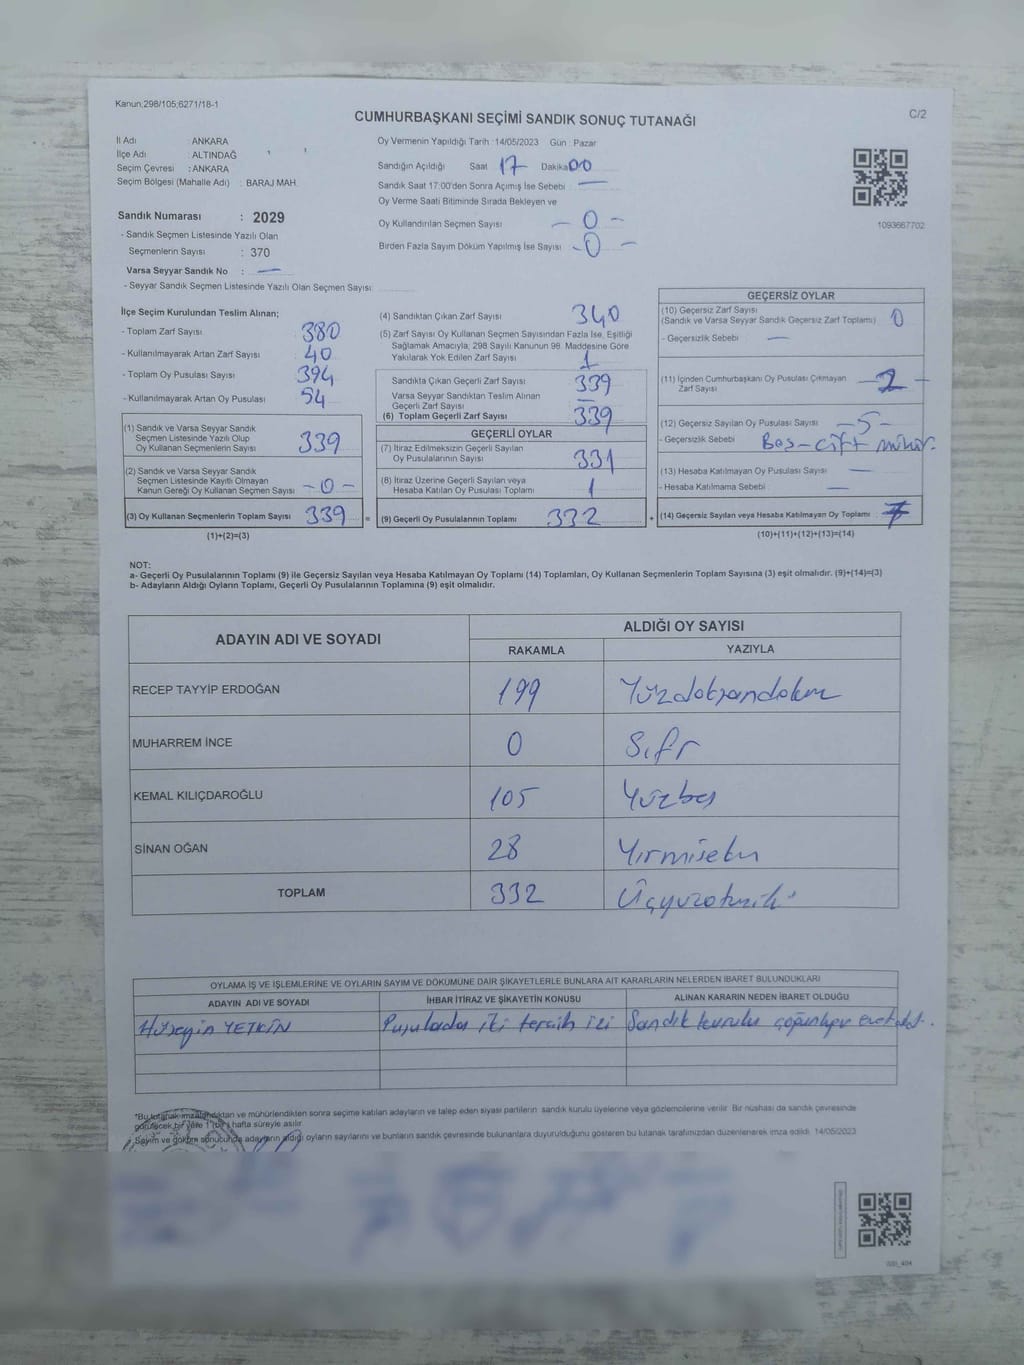 Kanun;298/105;6271/18-1
C/2
CUMHURBAŞKANI SEÇİMİ SANDIK SONUÇ TUTANAĞI
İl Adı : ANKARA
İlçe Adı : ALTINDAĞ
Seçim Çevresi : ANKARA
Seçim Bölgesi (Mahalle Adı) : BARAJ MAH.
Sandık Numarası : 2029
- Sandık Seçmen Listesinde Yazılı Olan
Seçmenlerin Sayısı : 370
Varsa Seyyar Sandık No : —
- Seyyar Sandık Seçmen Listesinde Yazılı Olan Seçmen Sayısı:
Oy Vermenin Yapıldığı Tarih :14/05/2023 Gün : Pazar
Sandığın Açıldığı Saat 17 Dakika 00
Sandık Saat 17:00'den Sonra Açımış İse Sebebi : —
Oy Verme Saati Bitiminde Sırada Bekleyen ve
Oy Kullandırılan Seçmen Sayısı — 0 —
Birden Fazla Sayım Döküm Yapılmış İse Sayısı - 0 —
1093667702
İlçe Seçim Kurulundan Teslim Alınan;
- Toplam Zarf Sayısı 380
- Kullanılmayarak Artan Zarf Sayısı 40
- Toplam Oy Pusulası Sayısı 394
- Kullanılmayarak Artan Oy Pusulası 54
(1) Sandık ve Varsa Seyyar Sandık
Seçmen Listesinde Yazılı Olup
Oy Kullanan Seçmenlerin Sayısı 339
(2) Sandık ve Varsa Seyyar Sandık
Seçmen Listesinde Kayıtlı Olmayan
Kanun Gereği Oy Kullanan Seçmen Sayısı - 0 -
(3) Oy Kullanan Seçmenlerin Toplam Sayısı 339 =
(1)+(2)=(3)
(4) Sandıktan Çıkan Zarf Sayısı 340
(5) Zarf Sayısı Oy Kullanan Seçmen Sayısından Fazla İse, Eşitliği
Sağlamak Amacıyla, 298 Sayılı Kanunun 98. Maddesine Göre
Yakılarak Yok Edilen Zarf Sayısı 1
Sandıkta Çıkan Geçerli Zarf Sayısı 339
Varsa Seyyar Sandıktan Teslim Alınan
Geçerli Zarf Sayısı —
(6) Toplam Geçerli Zarf Sayısı 339
GEÇERLİ OYLAR
(7) İtiraz Edilmeksizin Geçerli Sayılan
Oy Pusulalarının Sayısı 331
(8) İtiraz Üzerine Geçerli Sayılan veya
Hesaba Katılan Oy Pusulası Toplamı 1
(9) Geçerli Oy Pusulalarının Toplamı 332 +
GEÇERSİZ OYLAR
(10) Geçersiz Zarf Sayısı
(Sandık ve Varsa Seyyar Sandık Geçersiz Zarf Toplamı) 0
- Geçersizlik Sebebi —
(11) İçinden Cumhurbaşkanı Oy Pusulası Çıkmayan
Zarf Sayısı - 2 -
(12) Geçersiz Sayılan Oy Pusulası Sayısı - 5 -
- Geçersizlik Sebebi Boş-çift mühür.
(13) Hesaba Katılmayan Oy Pusulası Sayısı —
- Hesaba Katılmama Sebebi —
(14) Geçersiz Sayılan veya Hesaba Katılmayan Oy Toplamı : 7
(10)+(11)+(12)+(13)=(14)
NOT:
a- Geçerli Oy Pusulalarının Toplamı (9) ile Geçersiz Sayılan veya Hesaba Katılmayan Oy Toplamı (14) Toplamları, Oy Kullanan Seçmenlerin Toplam Sayısına (3) eşit olmalıdır. (9)+(14)=(3)
b- Adayların Aldığı Oyların Toplamı, Geçerli Oy Pusulalarının Toplamına (9) eşit olmalıdır.
ADAYIN ADI VE SOYADI ALDIĞI OY SAYISI
RAKAMLA YAZIYLA
RECEP TAYYİP ERDOĞAN 199 Yüzdoksandokuz
MUHARREM İNCE 0 Sıfır
KEMAL KILIÇDAROĞLU 105 Yüzbeş
SİNAN OĞAN 28 Yirmisekiz
TOPLAM 332 Üçyüzotuziki
OYLAMA İŞ VE İŞLEMLERİNE VE OYLARIN SAYIM VE DÖKÜMÜNE DAİR ŞİKAYETLERLE BUNLARA AİT KARARLARIN NELERDEN İBARET BULUNDUKLARI
ADAYIN ADI VE SOYADI İHBAR İTİRAZ VE ŞİKAYETİN KONUSU ALINAN KARARIN NEDEN İBARET OLDUĞU
Hüseyin YETKİN Pusulada iki tercih izi Sandık kurulu
*Bu tutanak imzalandıktan ve mühürlendikten sonra seçime katılan adayların ve talep eden siyasi partilerin sandık kurulu üyelerine veya gözlemcilerine verilir. Bir nüshası da sandık çevresinde
görülecek bir yere 1 (bir) hafta süreyle asılır.
Sayım ve döküm sonucunda adayların aldığı oyların sayılarını ve bunların sandık çevresinde bulunanlara duyurulduğunu gösteren bu tutanak tarafımızdan düzenlenerek imza edildi. 14/05/2023